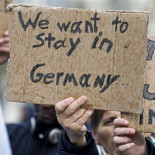 We want to
stay in
Germany..